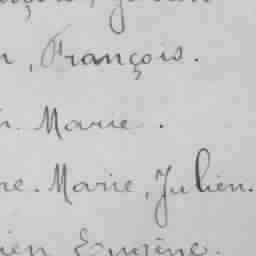 n, François.
n. Marie.
re. Marie, Julien.
ien Eugène.